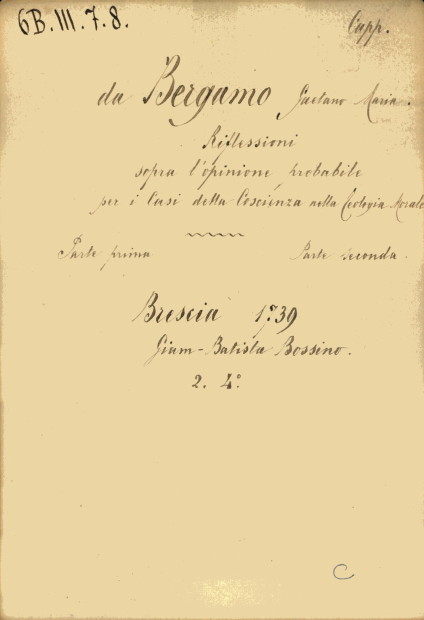 6B.III.7.8.
Capp.
da Bergamo Gaetano Maria.
Riflessioni
sopra l'opinione probabile
per i Casi della Coscienza nella Teologia Morale
Parte prima
Parte seconda.
Brescia 1739
Giam-Batista Bossino.
2. 4°.
C